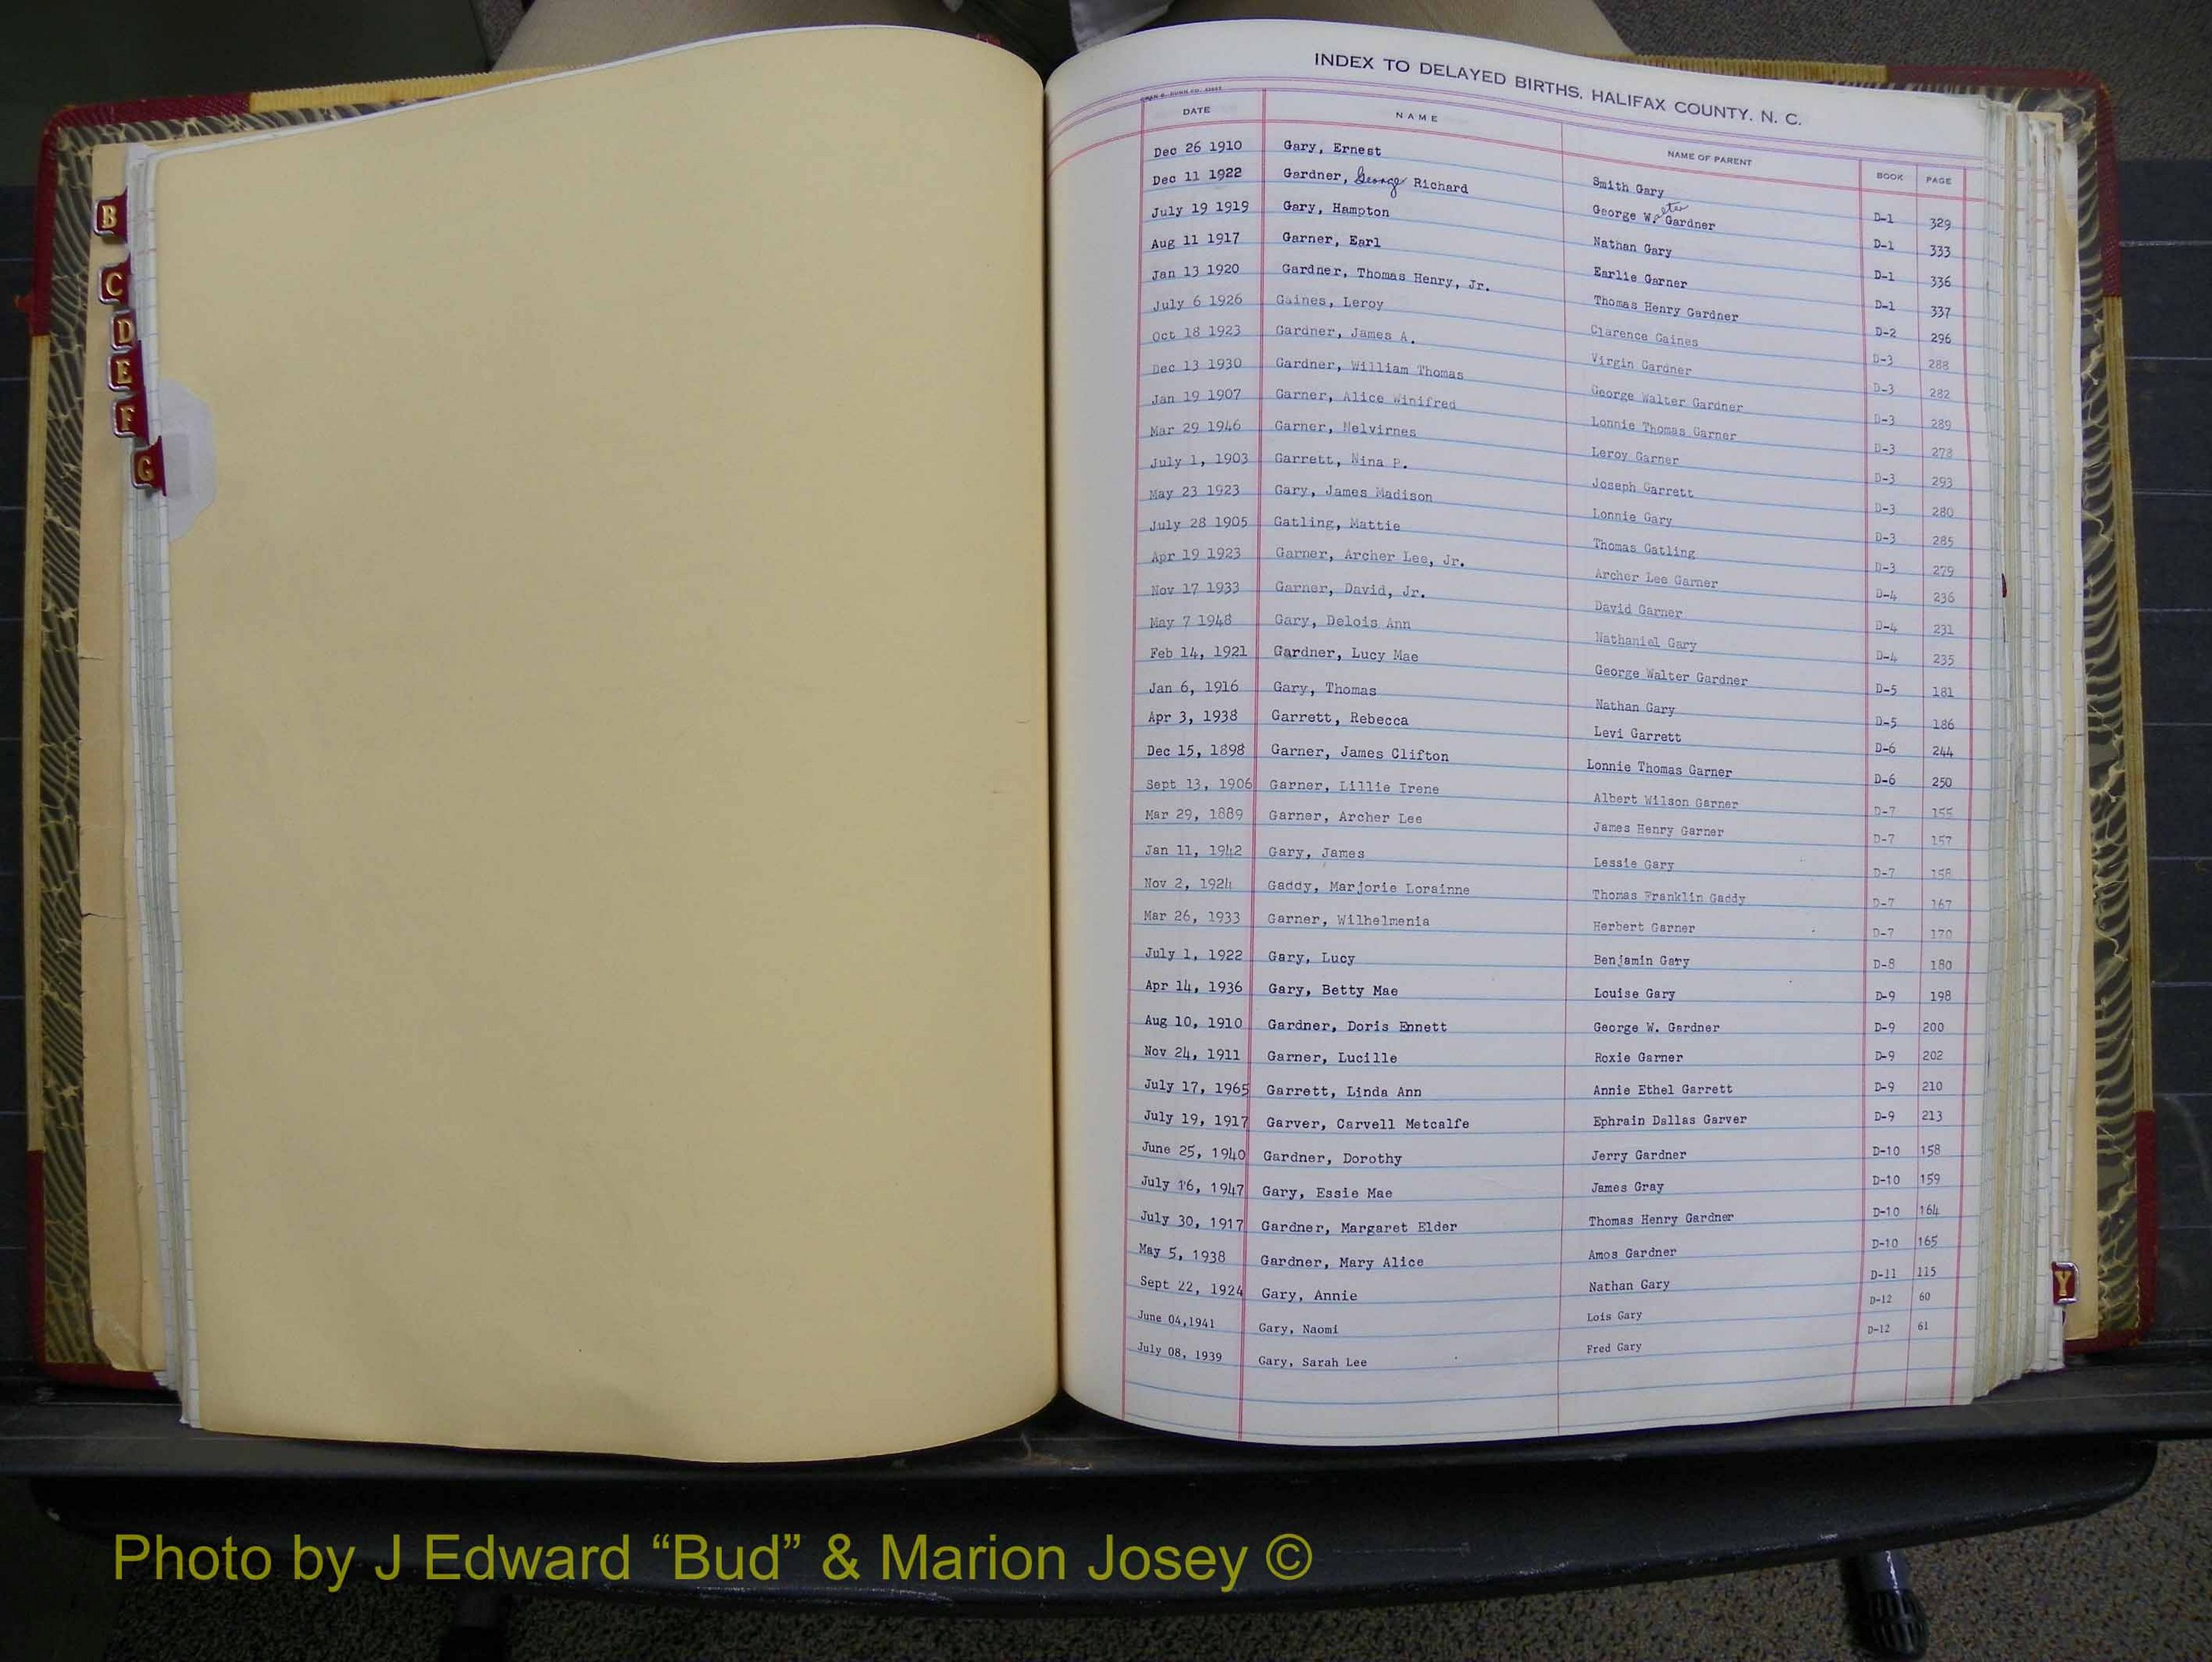 INDEX TO DELAYED BIRTHS, HALIFAX COUNTY, N. C.
DATE NAME NAME OF PARENT BOOK PAGE
Dec 26 1910 Gary, Ernest Smith Gary D-1 329
Dec 11 1922 Gardner, George Richard George Walter Gardner D-1 333
July 19 1919 Gary, Hampton Nathan Gary D-1 336
Aug 11 1917 Garner, Earl Earlie Garner D-1 337
Jan 13 1920 Gardner, Thomas Henry, Jr. Thomas Henry Gardner D-2 296
July 6 1926 Gaines, Leroy Clarence Gaines D-3 288
Oct 18 1923 Gardner, James A. Virgin Gardner D-3 282
Dec 13 1930 Gardner, William Thomas George Walter Gardner D-3 289
Jan 19 1907 Garner, Alice Winifred Lonnie Thomas Garner D-3 278
Mar 29 1946 Garner, Melvirnes Leroy Garner D-3 293
July 1, 1903 Garrett, Nina P. Joseph Garrett D-3 280
May 23 1923 Gary, James Madison Lonnie Gary D-3 285
July 28 1905 Gatling, Mattie Thomas Gatling D-3 279
Apr 19 1923 Garner, Archer Lee, Jr. Archer Lee Garner D-4 236
Nov 17 1933 Garner, David, Jr. David Garner D-4 231
May 7 1948 Gary, Delois Ann Nathaniel Gary D-4 235
Feb 14, 1921 Gardner, Lucy Mae George Walter Gardner D-5 181
Jan 6, 1916 Gary, Thomas Nathan Gary D-5 186
Apr 3, 1938 Garrett, Rebecca Levi Garrett D-6 244
Dec 15, 1898 Garner, James Clifton Lonnie Thomas Garner D-6 250
Sept 13, 1906 Garner, Lillie Irene Albert Wilson Garner D-7 155
Mar 29, 1889 Garner, Archer Lee James Henry Garner D-7 157
Jan 11, 1942 Gary, James Lessie Gary D-7 158
Nov 2, 1924 Gaddy, Marjorie Lorainne Thomas Franklin Gaddy D-7 167
Mar 26, 1933 Garner, Wilhelmenia Herbert Garner D-7 170
July 1, 1922 Gary, Lucy Benjamin Gary D-8 180
Apr 14, 1936 Gary, Betty Mae Louise Gary D-9 198
Aug 10, 1910 Gardner, Doris Ennett George W. Gardner D-9 200
Nov 24, 1911 Garner, Lucille Roxie Garner D-9 202
July 17, 1965 Garrett, Linda Ann Annie Ethel Garrett D-9 210
July 19, 1917 Garver, Carvell Metcalfe Ephrain Dallas Garver D-9 213
June 25, 1940 Gardner, Dorothy Jerry Gardner D-10 158
July 16, 1947 Gary, Essie Mae James Gray D-10 159
July 30, 1917 Gardner, Margaret Elder Thomas Henry Gardner D-10 164
May 5, 1938 Gardner, Mary Alice Amos Gardner D-10 165
Sept 22, 1924 Gary, Annie Nathan Gary D-11 115
June 04,1941 Gary, Naomi Lois Gary D-12 60
July 08, 1939 Gary, Sarah Lee Fred Gary D-12 61
B
C
D
E
F
G
Y
Photo by J Edward “Bud” & Marion Josey ©